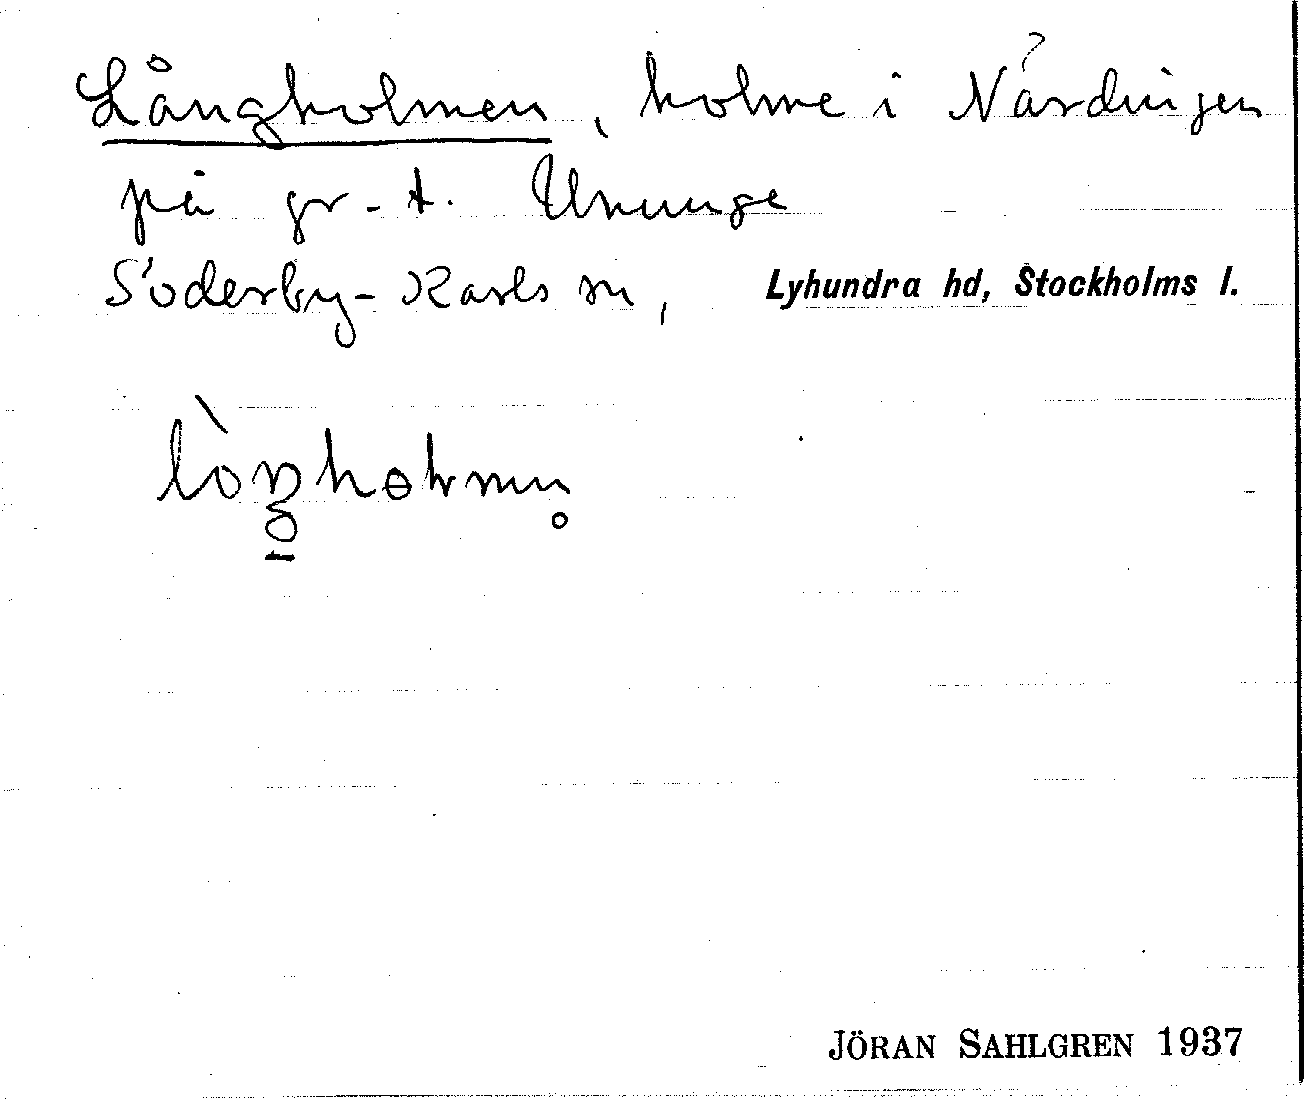 Långholmen, holme i Närdingen
på gr-t. Ununge
Söderby-Karls sn, Lyhundra hd, Stockholms l.
JÖRAN SAHLGREN 1937